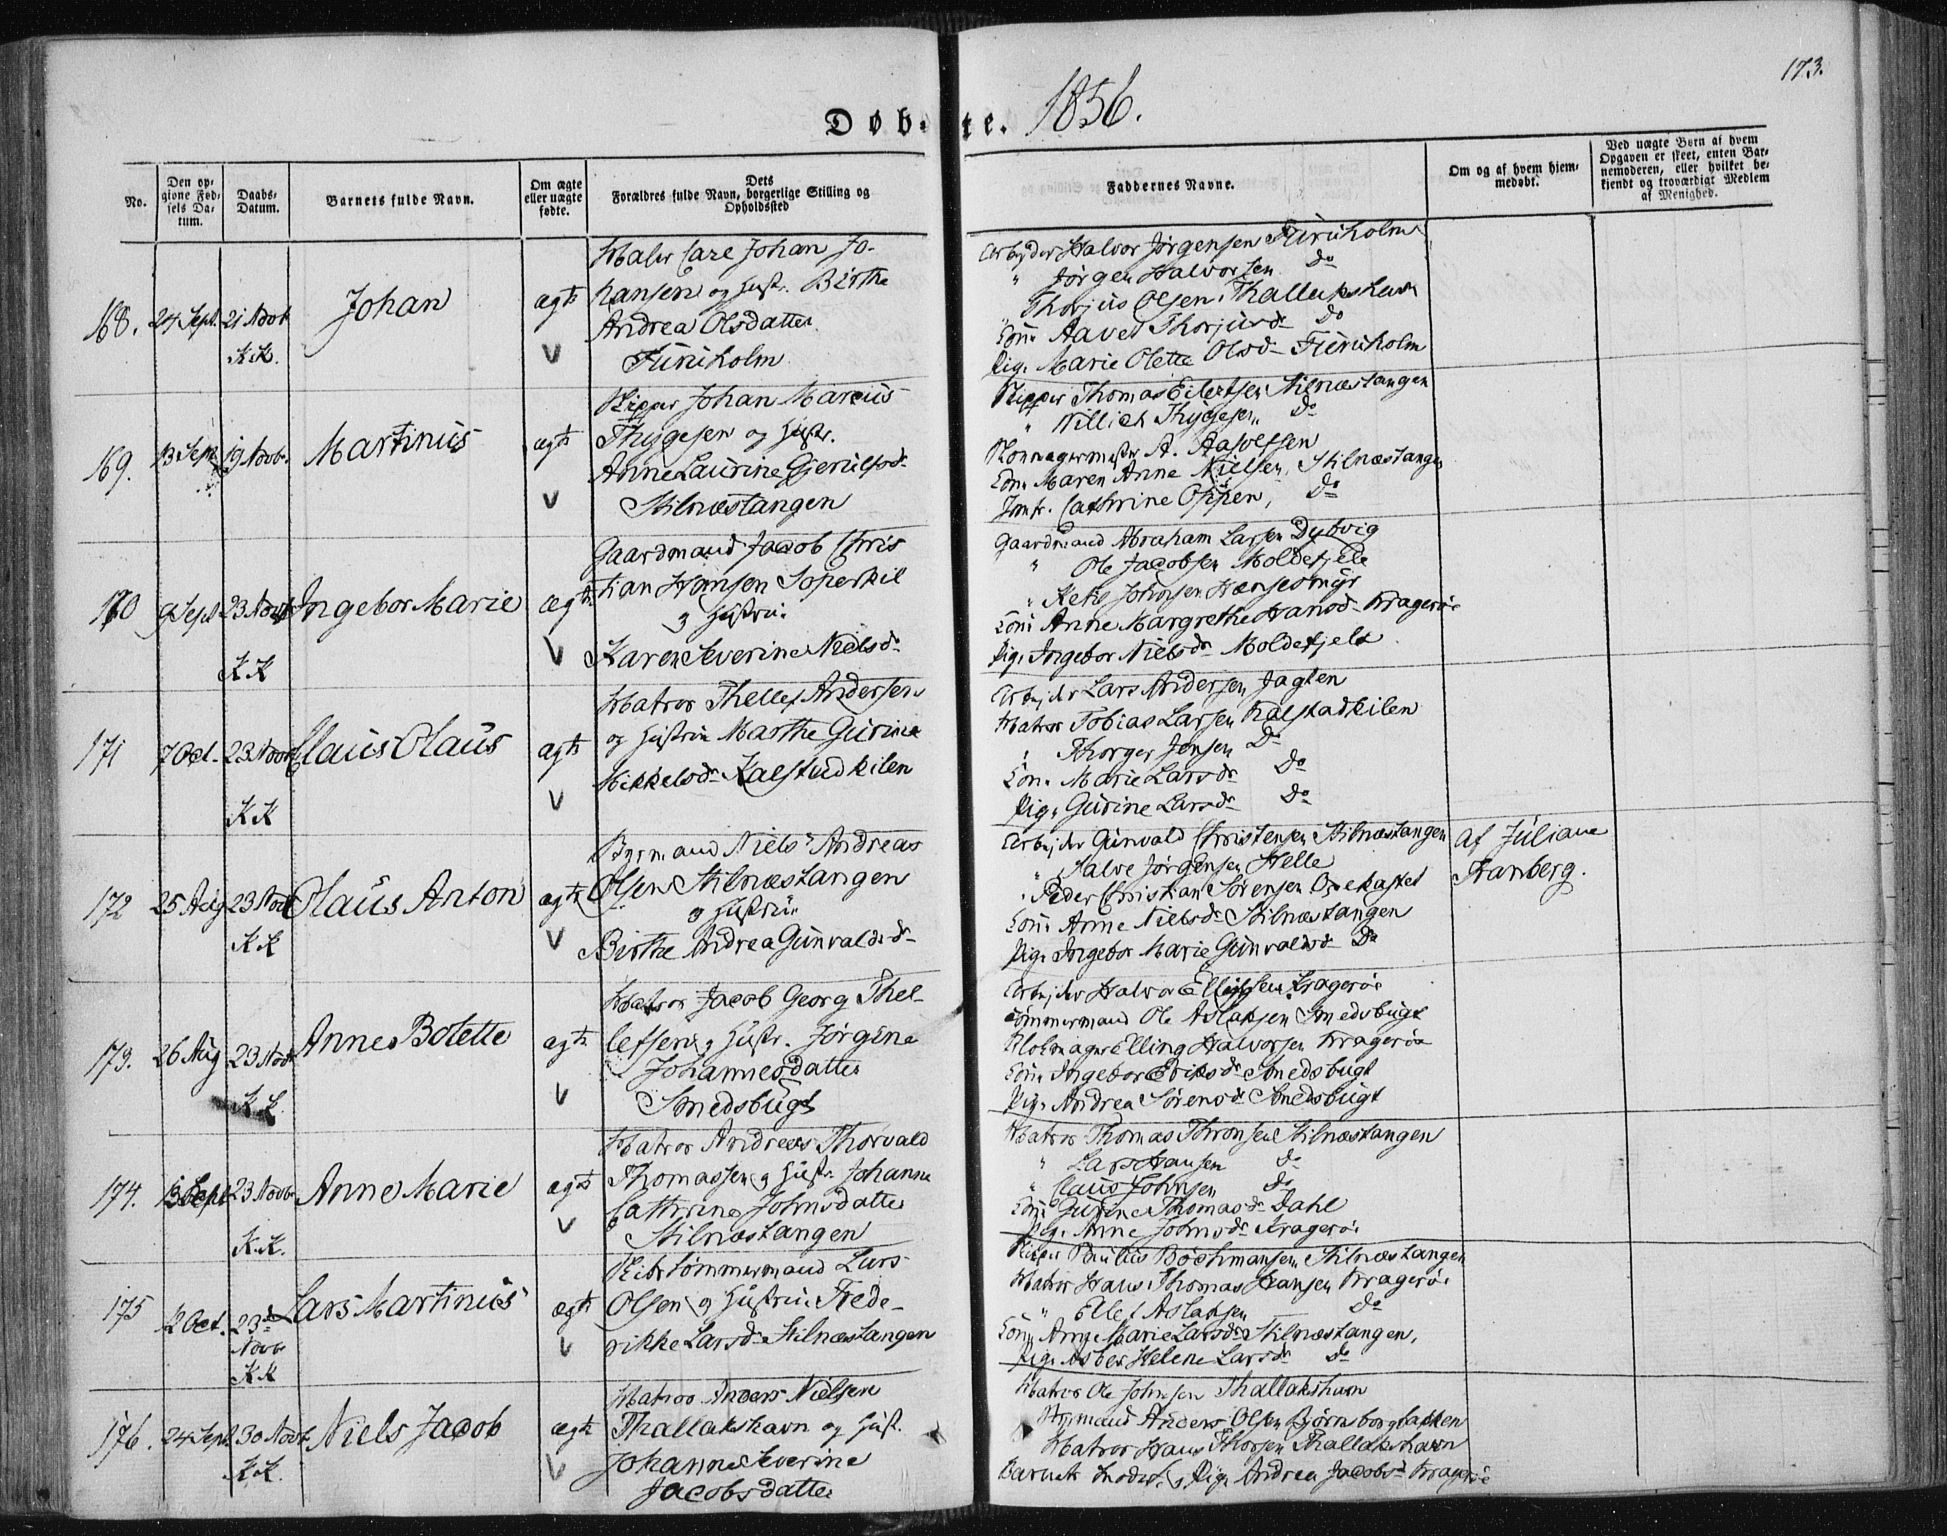 173.
Døb-te. 1856.
No.
Den opgivne Fødsels Datum.
Daabs-Datum.
Barnets fulde Navn.
Om ægte eller uægte fødte.
Dets Forældres fulde Navn, borgerlige Stilling og Opholdssted
Faddernes Navne.
Om og af hvem hjemmedøbt.
Ved uægte Børn af hvem Opgaven er skeet, enten Barnemoderen, eller hvilket bekiendt og troværdigt Medlem af Menighed.
168. 24 Sept. 21 Novb KK. Johan ægte V
Johan Jo-
hansen og Hustr. Birthe
Andrea Olsdatter
Furuholm
Arbejder Halvor Jørgensen Furuholm
" Jørgen Halvorsen do
" Thorjus Olsen Thallakshavn
Kone Thorjusdr do
Pige Marie Olette Olsdr Furuholm
169. 13 Sept 19 Novb. Martinus ægte V
Skipper Johan Marcus
Thygesen og Hustr.
Anne Laurine Gjerulfsdr
Stilnæstangen
Skipper Thomas Eilertsen Stilnæstangen
" Willich Thygesen do
A. Aalvessen
Kone Maren Anne Nielsen, Stilnæstangen
Jomfr. Cathrine Oppen, do
170 9 Sept 23 Novb KK Ingebor Marie ægte V
Gaardmand Jacob Chris
tian Hansen Soperkil
og Hustrue
Karen Severine Nielsdr
Gaardmand Abraham Larsen Dybvig
" Ole Jacobsen Moldefjeld
" Johnsen
Kone Anne Margrethe Hansdr Kragerøe
Pige Ingebor Nielsdr Moldefjeld
171 7 Oct. 23 Novb KK Claus Olaus ægte V
Matros Thellef Andersen
og Hustrue Marthe Gurine
Mikkelsdr Kalstadkilen
Arbejder Lars Andersen Jagten
Matros Tobias Larsen Kalstadkilen
" Thorger Jensen Do
Kone Marie Larsdr Do
Pige Gurine Larsdr Do
172 25 Aug 23 Novb KK Olaus Anton ægte V
Byemand Niels Andreas
Olsen Stilnæstangen
og Hustrue
Birthe Andrea Gunvaldsdr
Arbejder Gunvald Christensen Stilnæstangen
" Salve Jørgensen Helle
" Peder Christian Sørensen
Kone Anne Nielsdr Stilnæstangen
Pige Ingebor Marie Gunvaldsdr Do
Af Juliane
Stanberg.
173. 26 Aug 23 Novb KK. Anne Bolette ægte V
Matros Jacob Georg Thel-
lefsen og Hustr. Jørgine
Johannesdatter
Smedsbugt
Arbejder Halvor Ellingsen Kragerøe
Tømmermand Ole Aslaksen Smedsbugt
Blokmager Elling Halvorsen Kragerøe
Kone Ingebor Eriksdr Smedsbugt
Pige Andrea Sørensdr Smedsbugt
174. 13 Sept 23 Novb KK. Anne Marie ægte V
Matros Andreas Thorvald
Thomassen og Hustr. Johanne
Cathrine Johnsdatter
Stilnæstangen
Matros Thomas Thronsen Stilnæstangen
" Lars Hansen do
" Claus Johnsen do
Kone Gurine Thomasdr Dahl
Pige Anne Johnsdr Kragerøe
175 12 Oct. 23d Novbr KK Lars Martinus ægte V
Skibstømmermand Lars
Olsen og Hustrue Frede-
rikke Larsdr Stilnæstangen
Skipper Paulus Bochmansen Stilnæstangen
Matros Hans Thomas Hansen Kragerøe
" Ellef Aslaksen do
Kone Anne Marie Larsdr Stilnæstangen,
Pige Asber Helene Larsdr do
176. 24 Sept. 30 Novb. KK. Niels Jacob ægte V
Matros Anders Nielsen
Thallakshavn og Hust.
Johanne Severine
Jacobsdatter
Matros Ole Johnsen Thallakshavn
Styrmand Anders Olsen Bjørnsborgbakken
Matros Hans Thorsen Thallakshavn
Barnets Moder og Pige Andrea Jacobsd Kragerøe